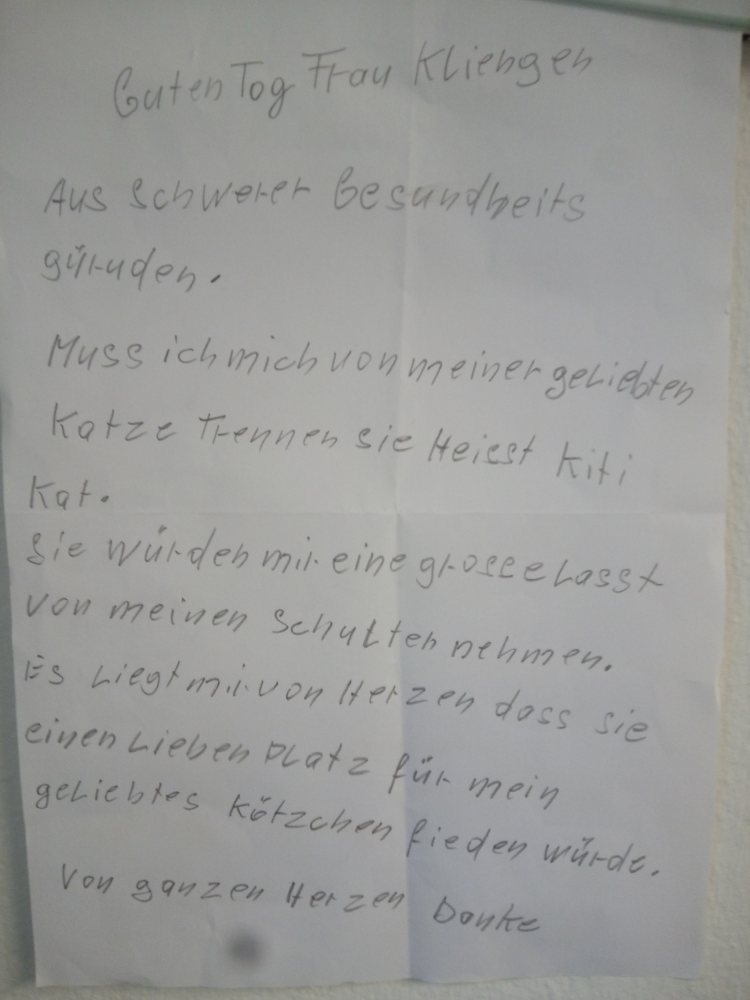 Guten Tog Frau Kliengen
Aus schwerer Gesundheits
gürunden.
Muss ich mich von meiner geliebten
Katze Trennen sie Heisst Kiti
Kat.
Sie würden mir eine grosse Lasst
von meinen Schulter nehmen.
Es Liegt mir von Herzen dass sie
einen Lieben Platz für mein
geliebtes Kötzchen fieden würde.
Von ganzen Herzen Danke